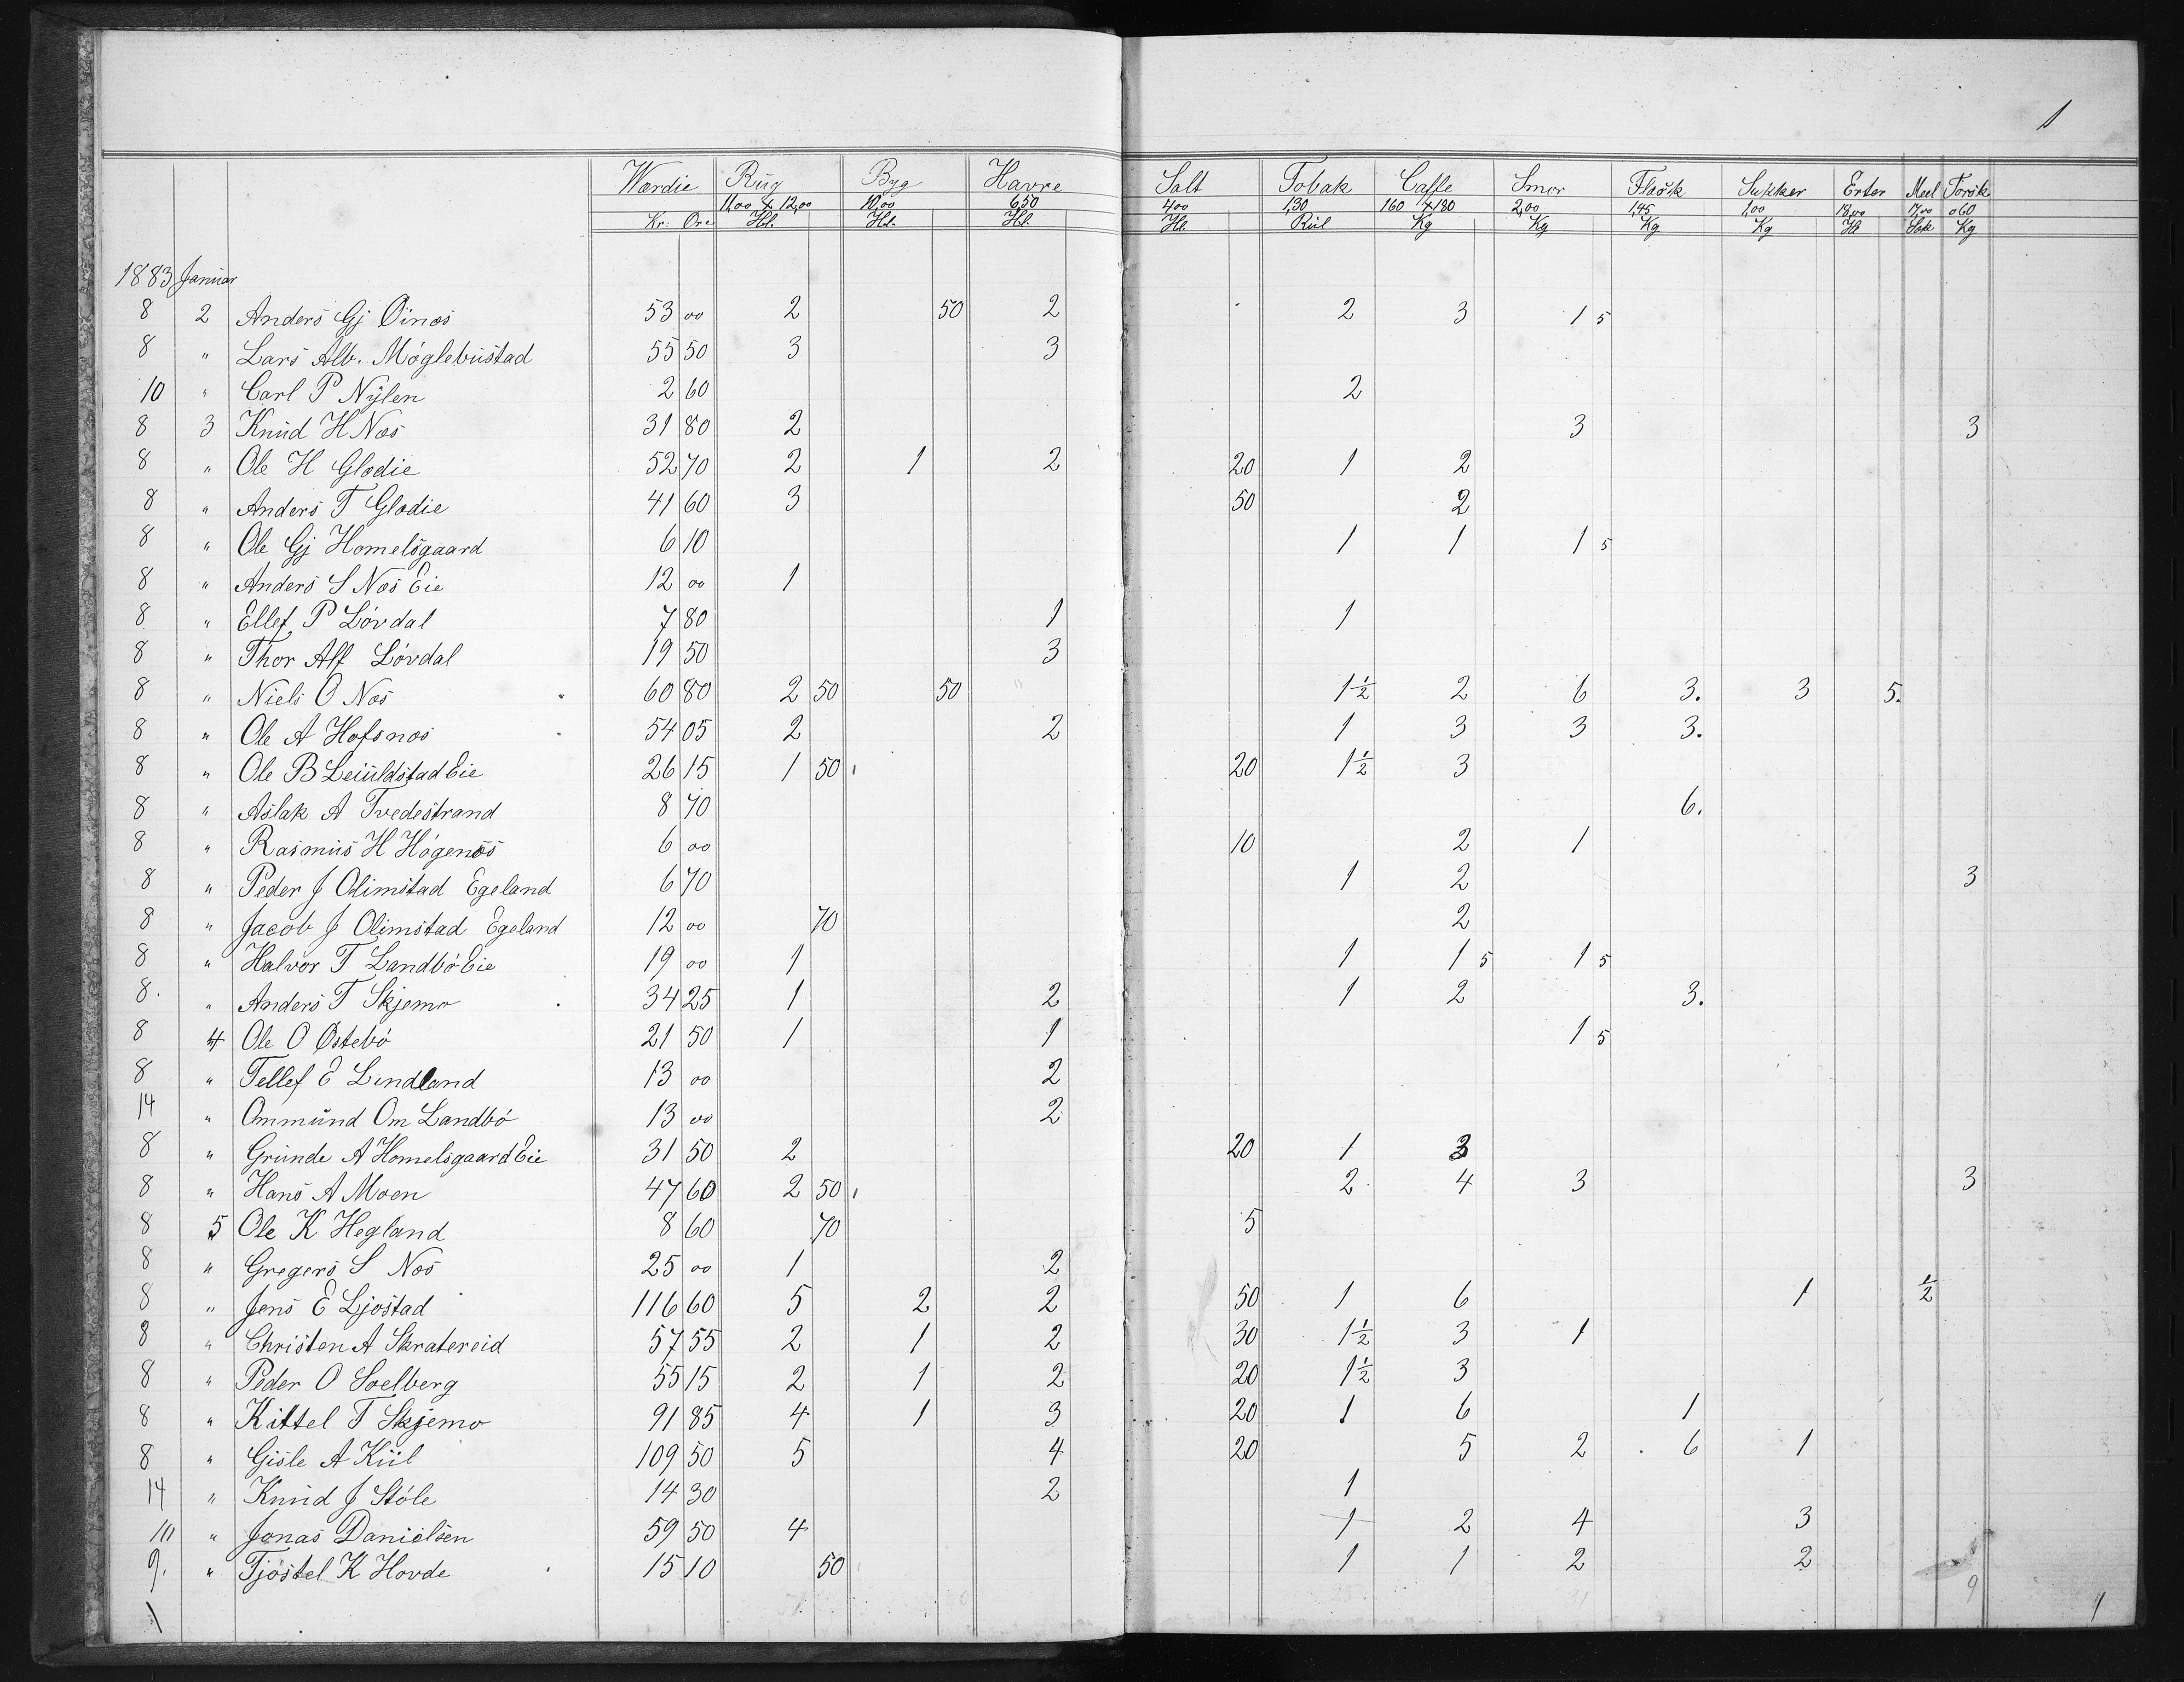 1
Wærdie Rug Byg Havre Salt Tobak Caffe Smør Flæsk Sukker Erter Meel Torsk
11,00 & 12,00 10,00 6,50 4,00 1,30 160 & 180 2,00 1,45 1,00 18,00 17,00 0,60
Kr: Øre Hl. Hl. Hl. Hl. Rül Kg Kg Kg Kg Hl Sæk Kg
1883 Januar
8 2 Anders Gj Øinæs 53 00 2 50 2 2 3 1 5
8 " Lars Alb. Möglebustad 55 50 3 3
10 " Carl P Nylen 2 60 2
8 3 Knud H Næs 31 80 2 3 3
8 " Ole H Glødie 52 70 2 1 2 20 1 2
8 " Anders T Glødie 41 60 3 50 2
8 " Ole Gj Homelsgaard 6 10 1 1 1 5
8 " Anders S Næs Eie 12 00 1
8 " Ellef P Lövdal 7 80 1 1
8 " Thor Alf Lövdal 19 50 3
8 " Niels O Næs 60 80 2 50 50 " 1½ 2 6 3. 3 5.
8 " Ole A Hofsnæs 54 05 2 2 1 3 3 3.
8 " Ole B Leiuldstad Eie 26 15 1 50 20 1½ 3
8 " Aslak A Tvedestrand 8 70 6.
8 " Rasmus H Högenæs 6 00 10 2 1
8 " Peder J Olimstad Egeland 6 70 1 2 3
8 " Jacob J Olimstad Egeland 12 00 70 2
8 " Halvor T Landbö Eie 19 00 1 1 1 5 1 5
8. " Anders T Skjemo 34 25 1 2 1 2 3.
8 4 Ole O Østebö 21 50 1 1 1 5
8 " Tellef E Lindland 13 00 2
14 " Ommund Om Landbö 13 00 2
8 " Grunde A Homelsgaard Eie 31 50 2 20 1 3
8 " Hans A Moen 47 60 2 50 2 4 3 3
8 5 Ole K Hegland 8 60 70 5
8 " Gregers S Næs 25 00 1 2
8 " Jens E Ljøstad 116 60 5 2 2 50 1 6 1 ½
8 " Christen A Skratereid 57 55 2 1 2 30 1½ 3 1
8 " Peder O Soelberg 55 15 2 1 2 20 1½ 3
8 " Kittel T Skjemo 91 85 4 1 3 20 1 6 1
8 " Gisle A Kiil 109 50 5 4 20 5 2 6 1
14 " Knud J Stöle 14 30 2 1
10 " Jonas Danielsen 59 50 4 1 2 4 3
9. " Tjøstel K Hovde 15 10 50 1 1 2 2
9
1